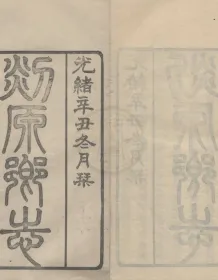 光緒辛丑冬月栞
剡源鄉志